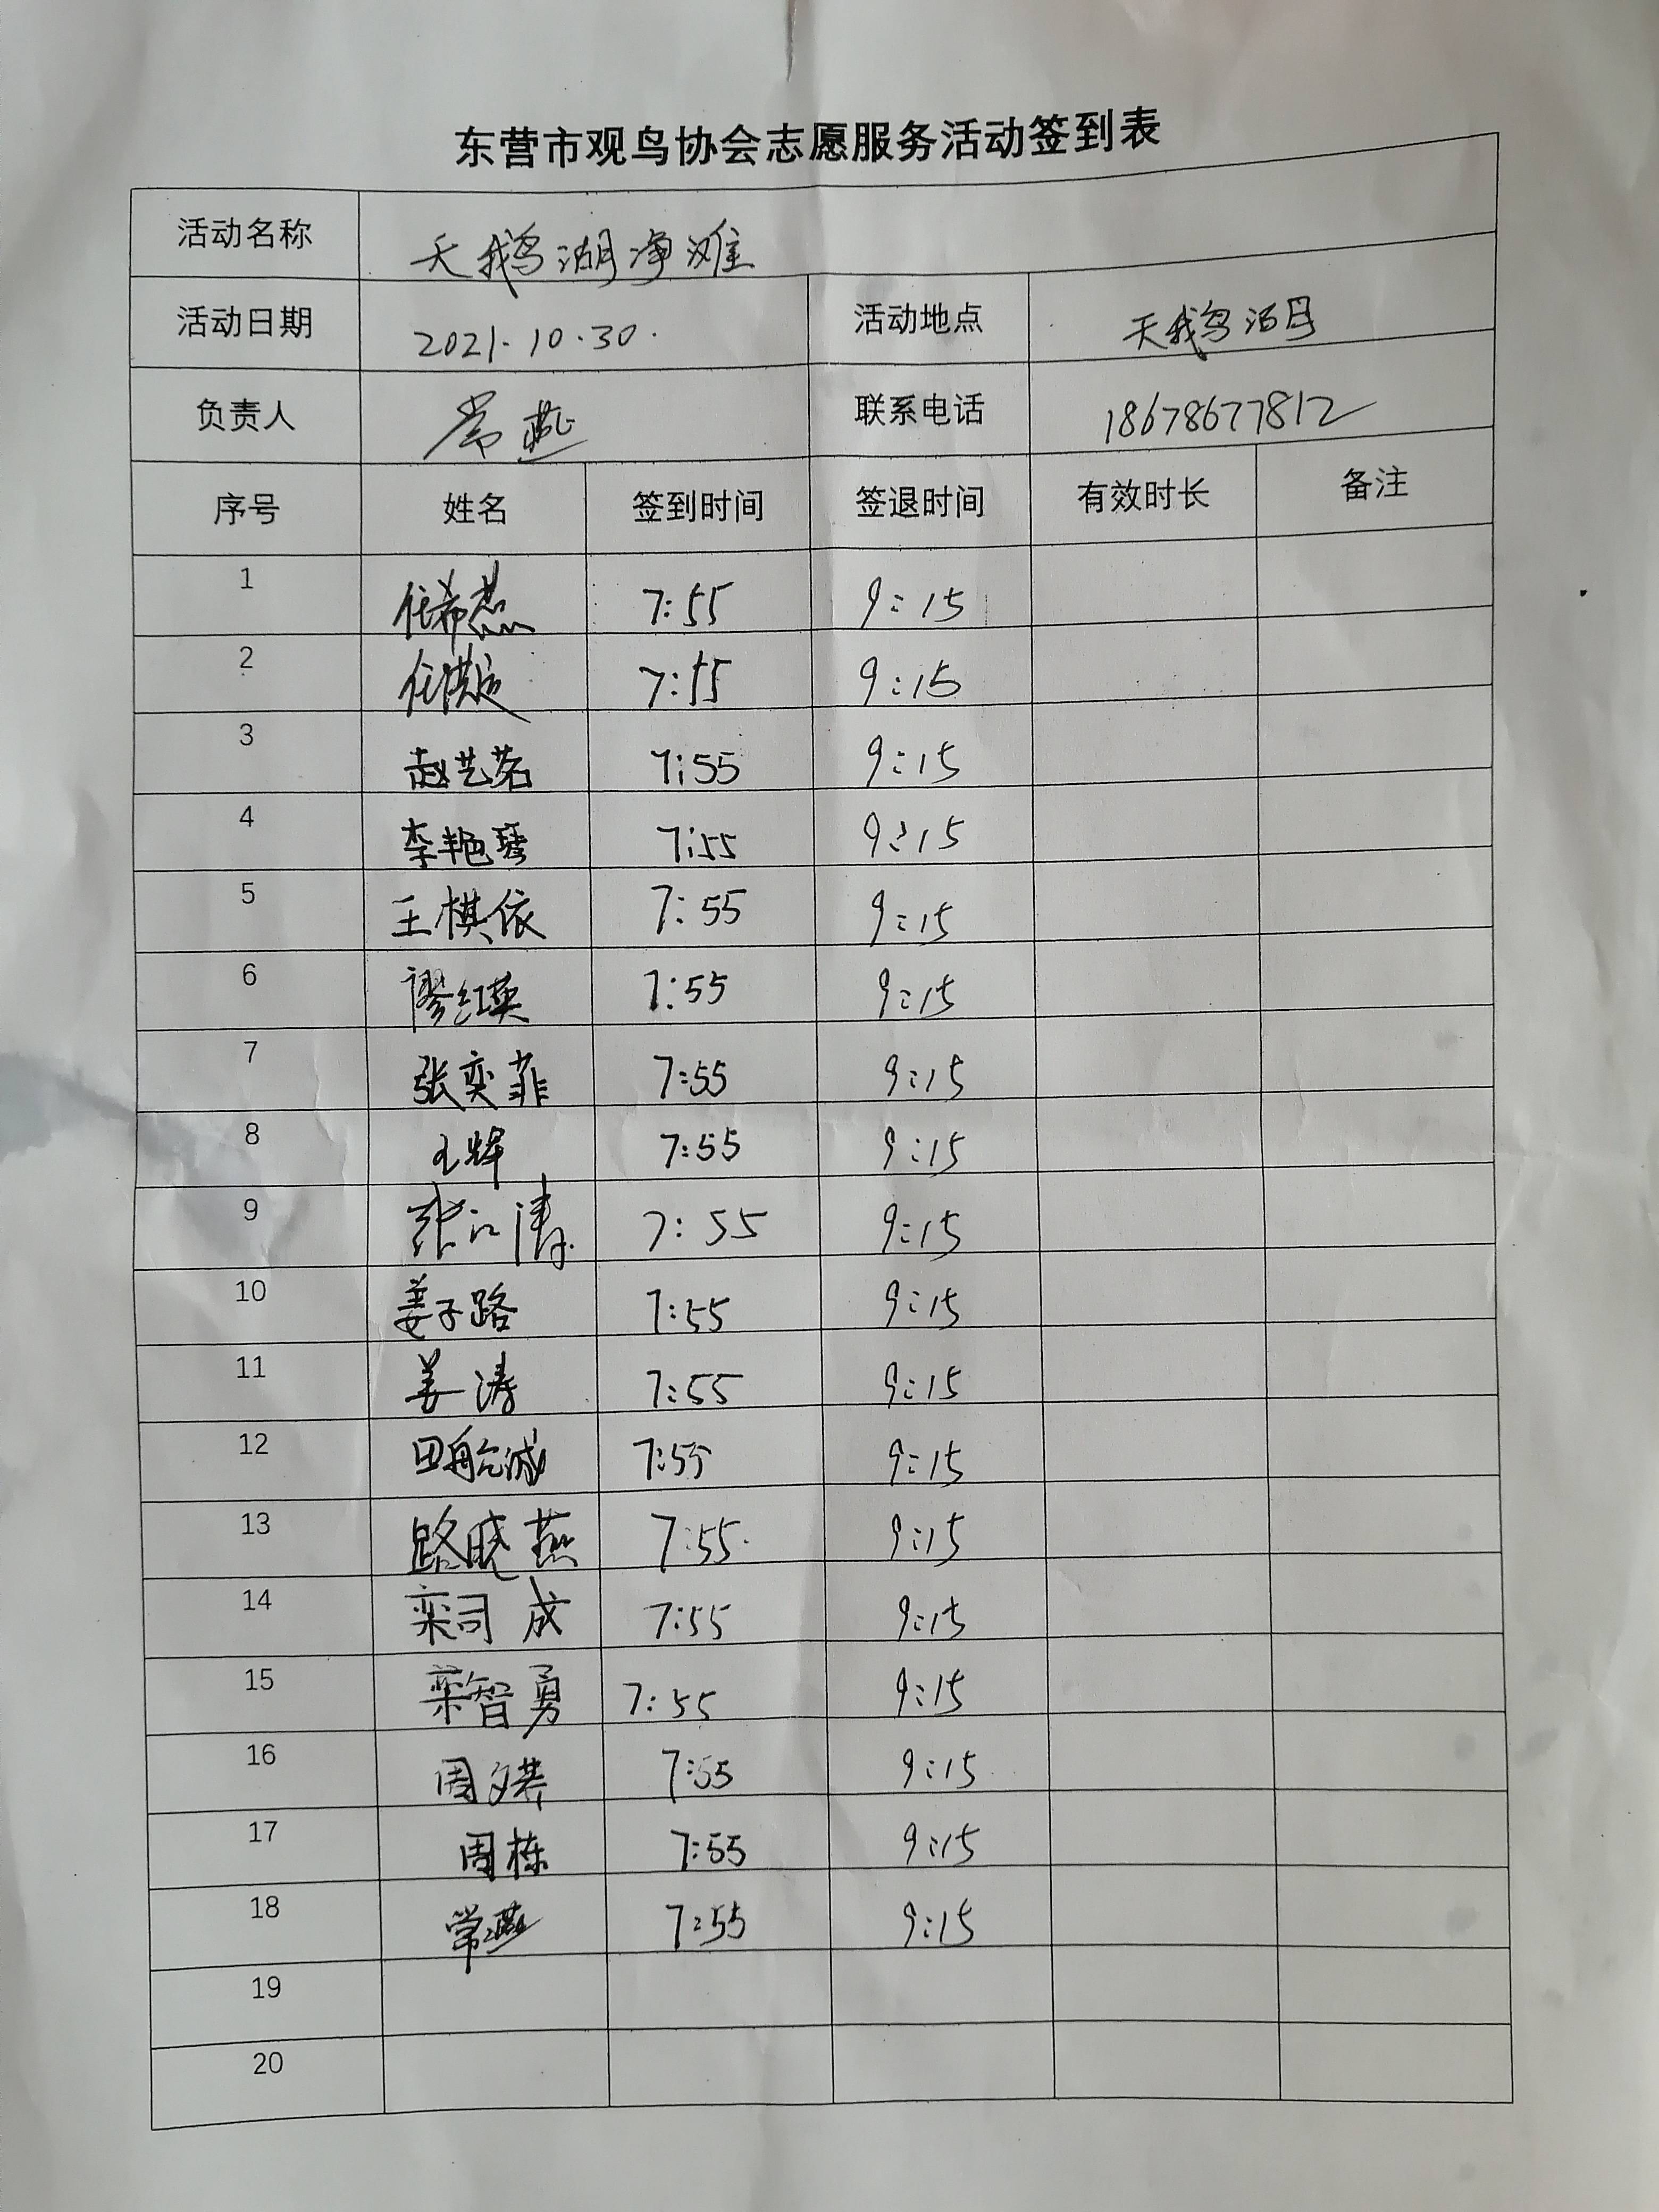 东营市观鸟协会志愿服务活动签到表
活动名称 天鹅湖净滩
活动日期 2021.10.30. 活动地点 天鹅湖
负责人 常燕 联系电话 18678677812
序号 姓名 签到时间 签退时间 有效时长 备注
1 任希燕 7:55 9:15
2 7:55 9:15
3 赵艺茗 7:55 9:15
4 李艳琴 7:55 9:15
5 王棋依 7:55 9:15
6 廖红英 7:55 9:15
7 张奕菲 7:55 9:15
8 王辉 7:55 9:15
9 张江涛 7:55 9:15
10 姜子路 7:55 9:15
11 姜涛 7:55 9:15
12 田航诚 7:55 9:15
13 路晓燕 7:55 9:15
14 栾司成 7:55 9:15
15 栾智勇 7:55 9:15
16 周文棋 7:55 9:15
17 周栋 7:55 9:15
18 常燕 7:55 9:15
19
20